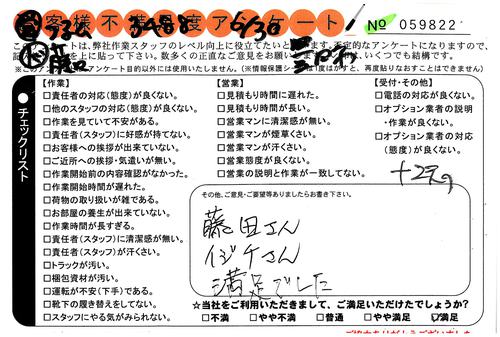 お客様不満足度アンケート
№ 059822
このアンケートは、弊社作業スタッフのレベル向上に役立てたいと
否定的なアンケートになりますので、
上に貼って下さい。数多くの正直なご意見をお願い
いくつでも結構です。
※このアンケート目的以外には使用いたしません。(※情報保護シールは1度がすと、再度貼りなおすことはできません)
●チェックリスト
【作業】
□責任者の対応(態度)が良くない。
□他のスタッフの対応(態度)が良くない。
□作業を見ていて不安がある。
□責任者(スタッフ)に好感が持てない。
□お客様への挨拶が出来ていない。
□ご近所への挨拶・気遣いが無い。
□作業開始前の内容確認がなかった。
□作業開始時間が遅れた。
□荷物の取り扱いが雑である。
□お部屋の養生が出来ていない。
□作業時間が長すぎる。
□責任者(スタッフ)に清潔感が無い。
□責任者(スタッフ)が汗くさい。
□トラックが汚い。
□梱包資材が汚い。
□運転が不安(下手)である。
□靴下の履き替えをしてない。
□スタッフにやる気がみられない。
【営業】
□見積もり時間に遅れた。
□見積もり時間が長い。
□営業マンに清潔感が無い。
□営業マンが煙草くさい。
□営業マンが汗くさい。
□営業態度が良くない。
□営業の説明と作業が一致してない。
【受付・その他】
□電話の対応が良くない。
□オプション業者の説明
・作業が良くない。
□オプション業者の対応
(態度)が良くない。
その他、ご意見・ご要望等ありましたらお書き下さい。
藤田さん
イジケさん
満足でした
☆当社をご利用いただきまして、ご満足いただけたでしょうか?
□不満 □やや不満 □普通 □やや満足 ☑満足